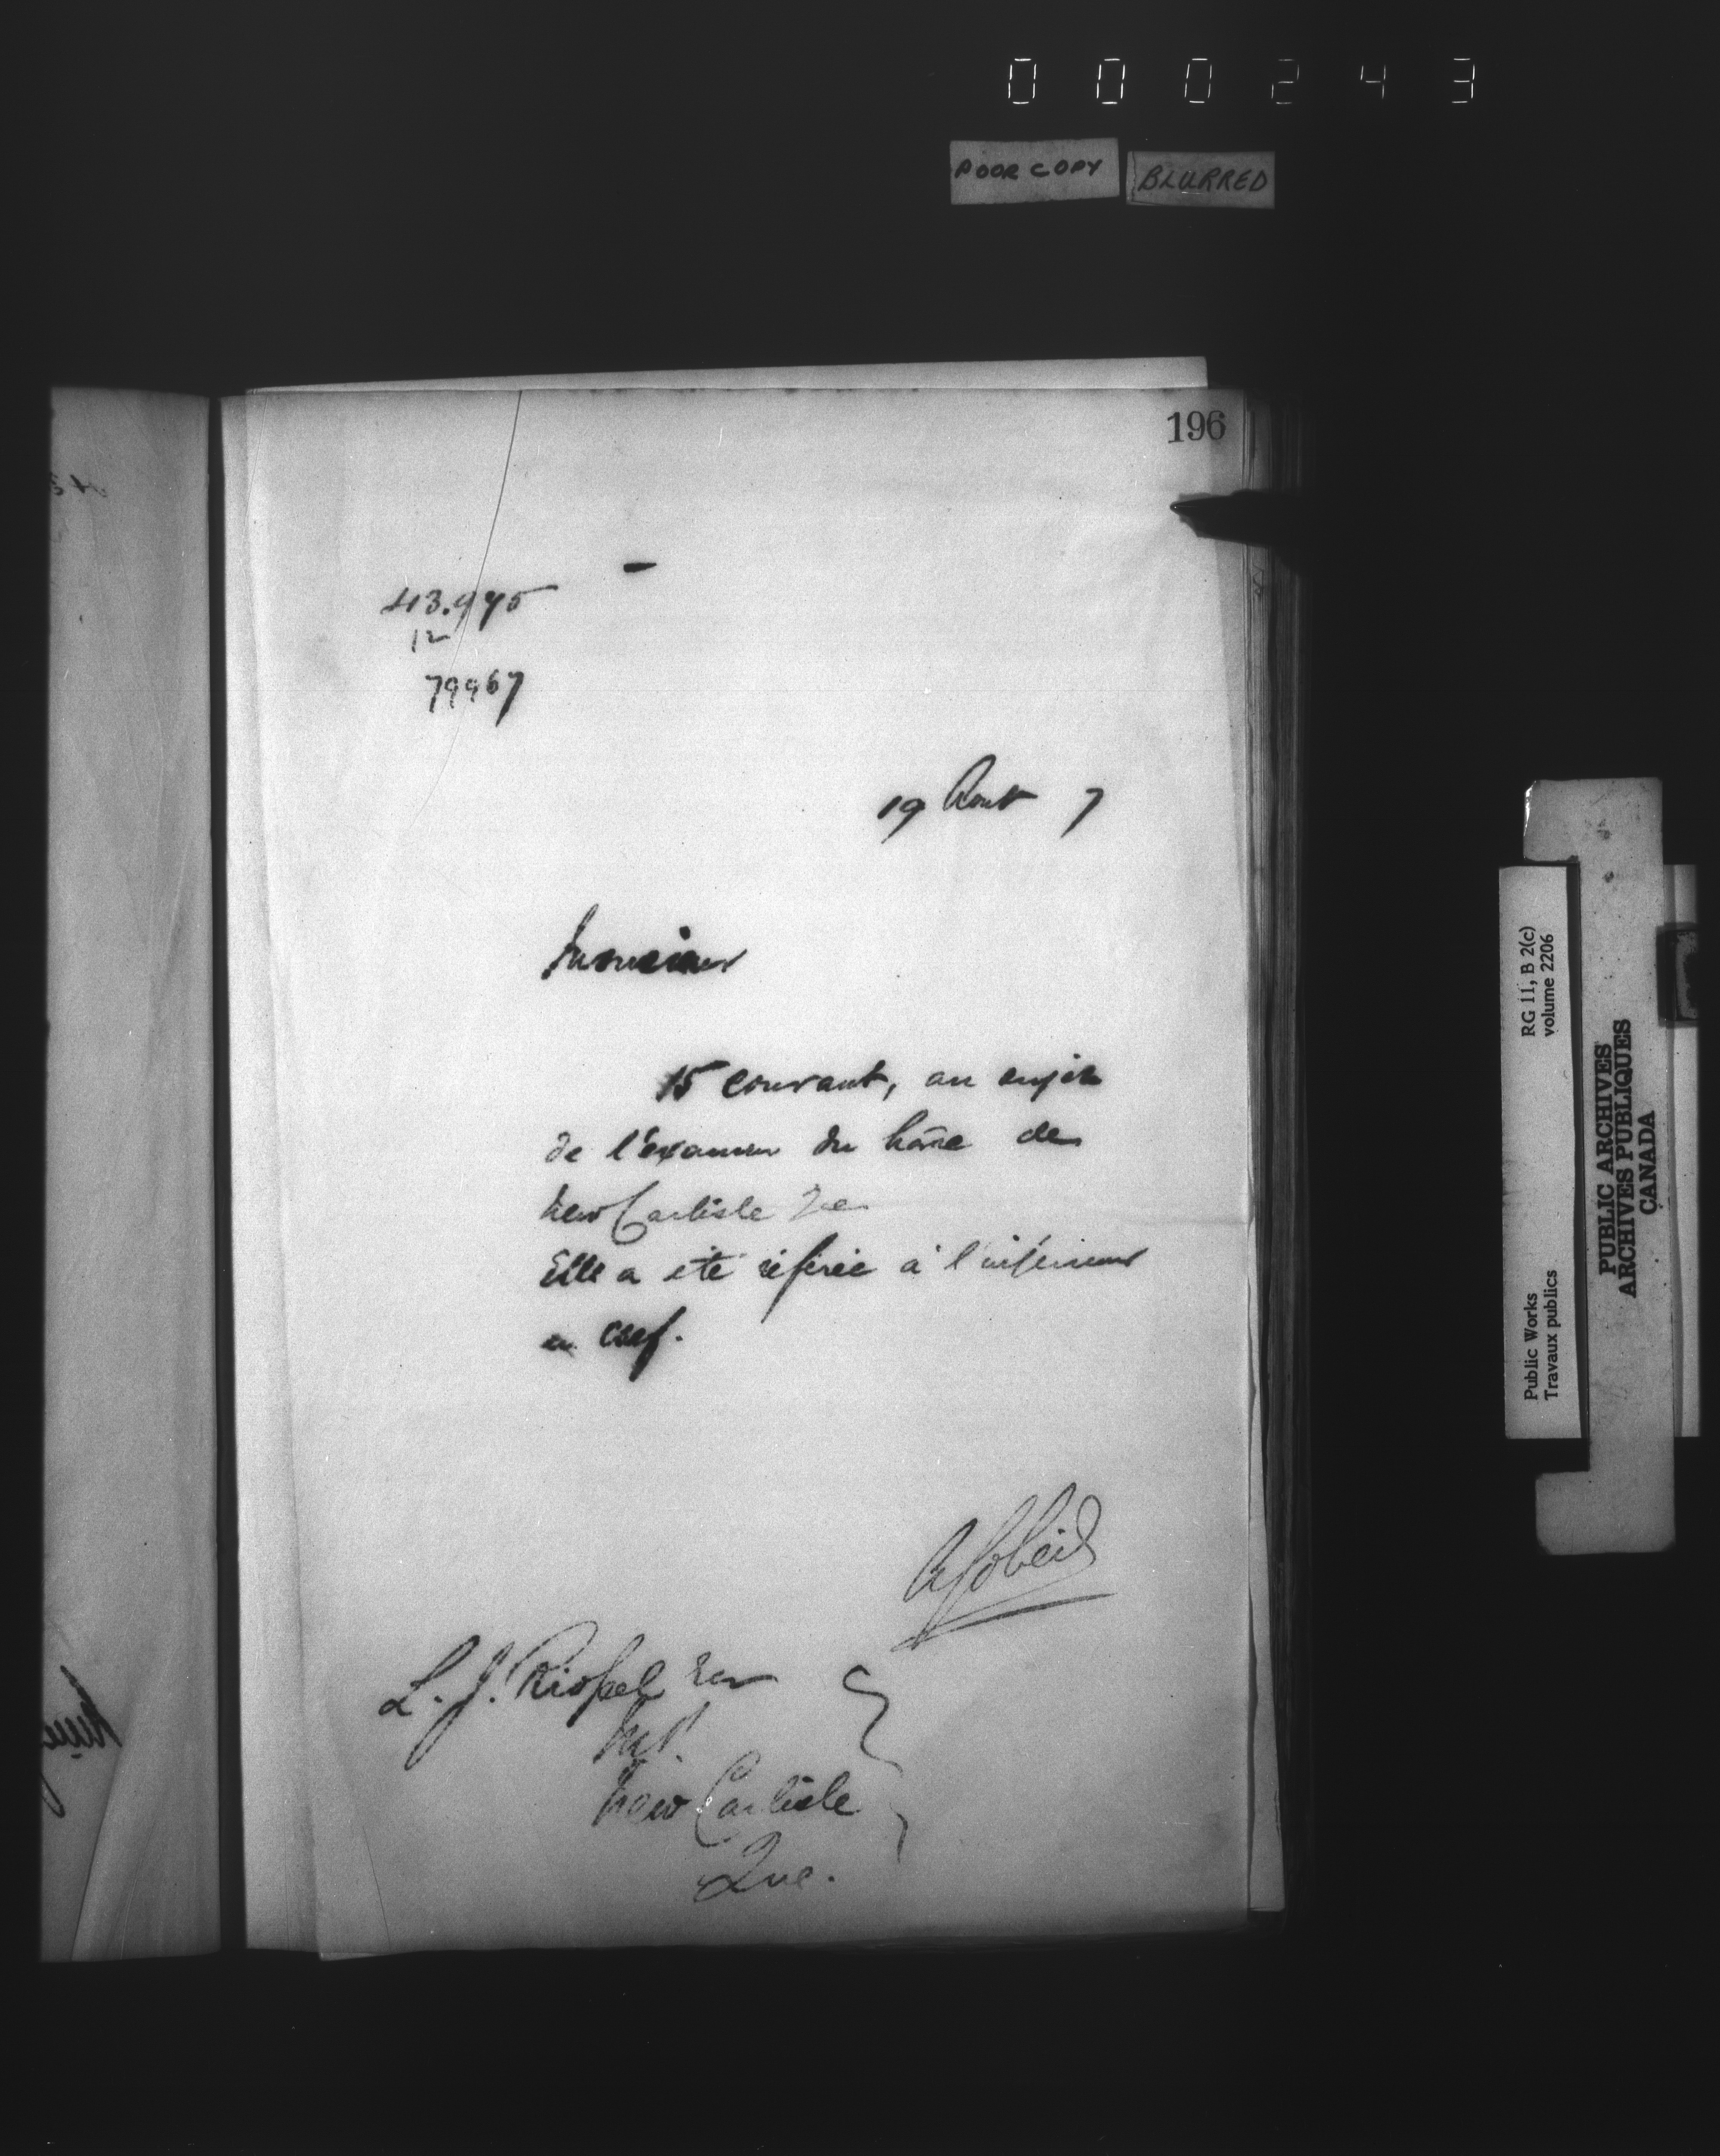 000243
POOR COPY BLURRED
196
43.975
12
79967
19 Aout 7
Monsieur
15 courant, au sujet
de l'examen du hâvre de
New Carlisle Que
Elle a été référée à l'ingénieur
en chef.
AGobeil
L. J. Riopel
New Carlisle
Que.
RG 11, B 2(c)
volume 2206
Public Works
Travaux publics
PUBLIC ARCHIVES
ARCHIVES PUBLIQUES
CANADA